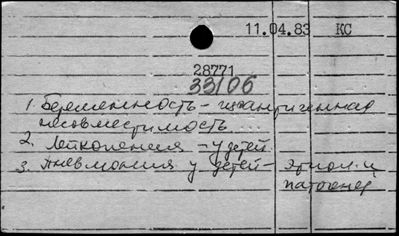 11.04.83 КС
28771
33106
1. Беременность - изоантигенная
несовместимость
2. Лейкопения - у детей
3. Пневмония у детей - Этиол. и
патогенез